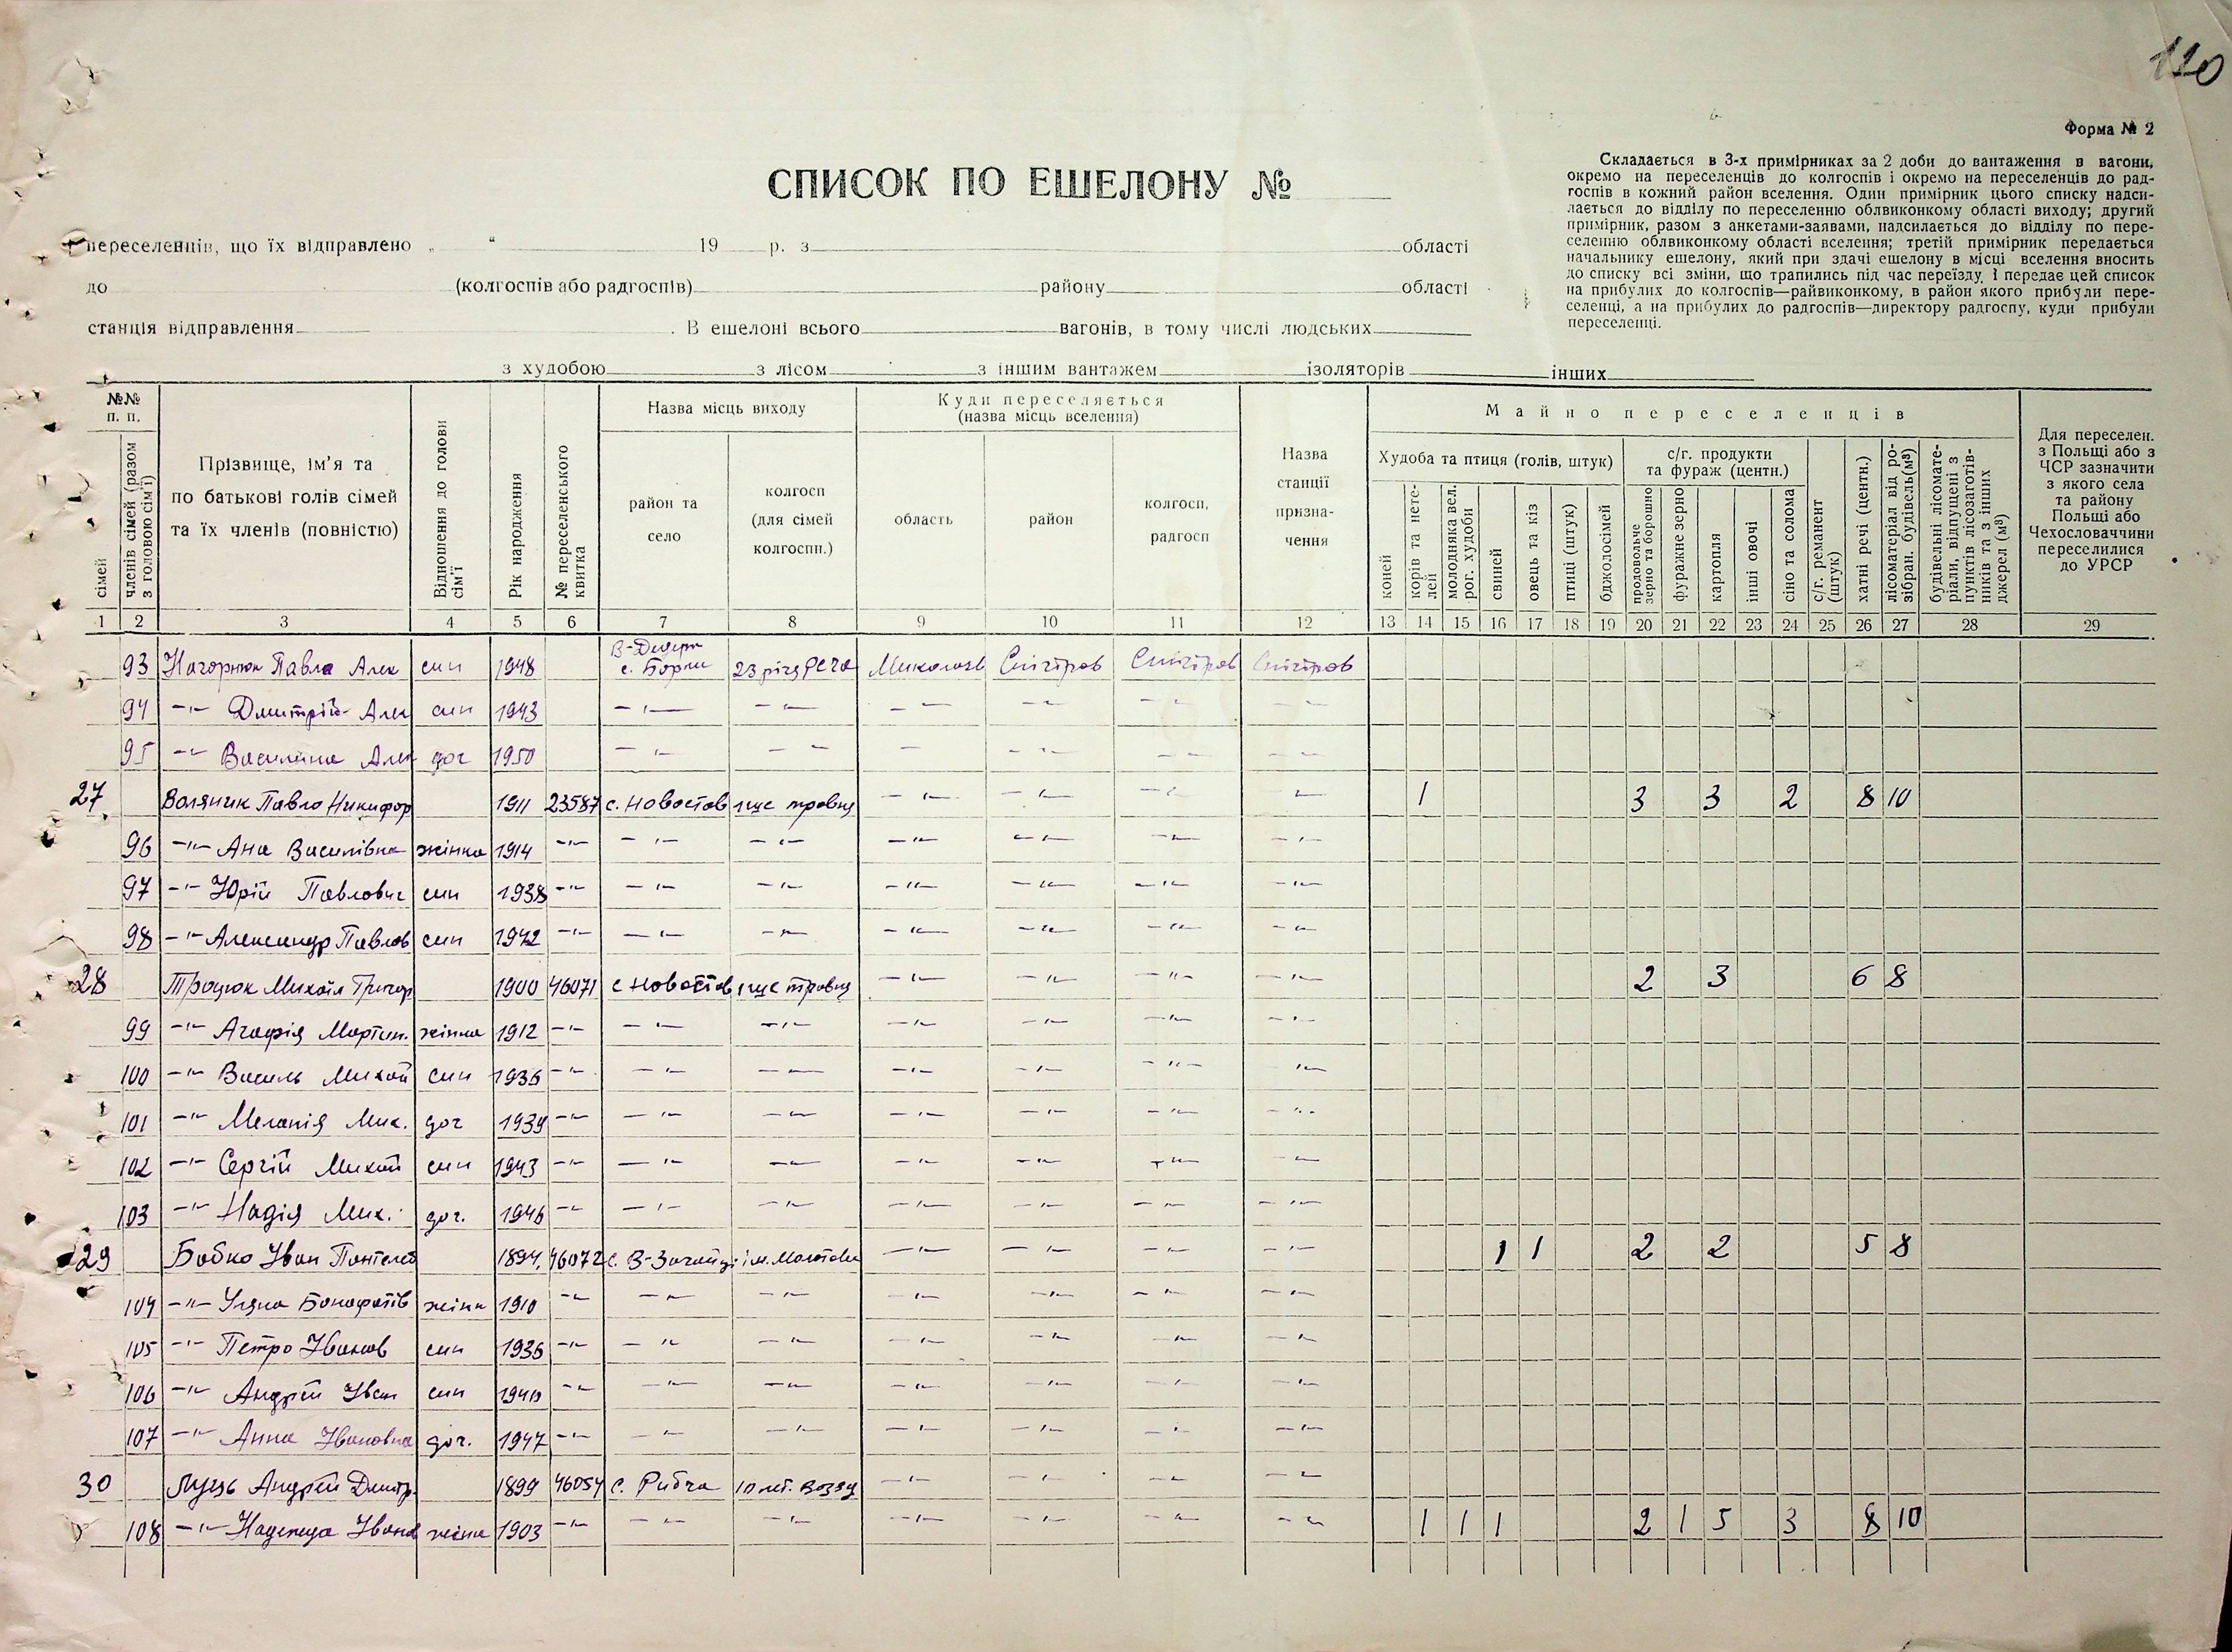 110
Форма № 2
СПИСОК ПО ЕШЕЛОНУ №
Складається в 3-х примірниках за 2 доби до вантаження в вагони,
окремо на переселенців до колгоспів і окремо на переселенців до рад-
госпів в кожний район вселення. Один примірник цього списку надси-
лається до відділу по переселенню облвиконкому області виходу; другий
примірник, разом з анкетами-заявами, надсилається до відділу по пере-
селенню облвиконкому області вселення; третій примірник передається
начальнику ешелону, який при здачі ешелону в місці вселення вносить
до списку всі зміни, що трапились під час переїзду і передає цей список
на прибулих до колгоспів—райвиконкому, в район якого прибули пере-
селенці, а на прибулих до радгоспів—директору радгоспу, куди прибули
переселенці.
переселенців, що їх відправлено „ “ 19 р. з області
до (колгоспів або радгоспів) району області
станція відправлення . В ешелоні всього вагонів, в тому числі людських
з худобою з лісом з іншим вантажем ізоляторів інших
№№ п. п.
сімей
членів сімей (разом з головою сім'ї)
Прізвище, ім'я та по батькові голів сімей та їх членів (повністю)
Відношення до голови сім'ї
Рік народження
№ переселенського квитка
Назва місць виходу
район та село
колгосп (для сімей колгоспн.)
Куди переселяється (назва місць вселення)
область
район
колгосп, радгосп
Назва станції призна-чення
Майно переселенців
Худоба та птиця (голів, штук)
коней
корів та нете-лей
молодняка вел. рог. худоби
свиней
овець та кіз
птиці (штук)
бджолосімей
с/г. продукти та фураж (центн.)
продовольче зерно та борошно
фуражне зерно
картопля
інші овочі
сіно та солома
с/г. реманент (штук)
хатні речі (центн.)
лісоматеріал від ро-зібран. будівель (м³)
будівельні лісомате-ріали, відпущені з пунктів лісозаготів-ників та з інших джерел (м³)
Для переселен. з Польщі або з ЧСР зазначити з якого села та району Польщі або Чехословаччини переселилися до УРСР
1 2 3 4 5 6 7 8 9 10 11 12 13 14 15 16 17 18 19 20 21 22 23 24 25 26 27 28 29
93 Нагорнюк Павла Алек син 1948 с. Борки 23 річя Миколаїв Снігіров Снігіров Снігіров
94 -"- Дмитрій Алек син 1943 -"- -"- -"- -"- -"- -"-
95 -"- Василина Алек доч 1950 -"- -"- - -"- -"- -"-
27 Воляник Павло Никифор 1911 23587 с. Новостав 1ще травня -"- -"- -"- -"- 1 3 3 2 8 10
96 -"- Ана Василівна жінка 1914 -"- -"- -"- -"- -"- -"- -"-
97 -"- Юрій Павлович син 1938 -"- -"- -"- -"- -"- -"- -"-
98 -"- Александр Павлов син 1942 -"- -"- -"- -"- -"- -"- -"-
28 Троцюк Михаіл Григор 1900 46071 с Новостав 1ще травня -"- -"- -"- -"- 2 3 6 8
99 -"- Агафія Мартин. жінка 1912 -"- -"- -"- -"- -"- -"- -"-
100 -"- Василь Михай син 1936 -"- -"- -"- -"- -"- -"- -"-
101 -"- Меланія Мих. доч 1939 -"- -"- -"- -"- -"- -"- -"-
102 -"- Сергій Михай син 1943 -"- -"- -"- -"- -"- -"- -"-
103 -"- Надія Мих. доч. 1946 -"- -"- -"- -"- -"- -"- -"-
29 Бобко Іван Пантелей 1894. 46072 с. В-Загайці ім. Молотова -"- -"- -"- -"- 1 1 2 2 5 8
104 -"- Уляна Бонафатів жінк 1910 -"- -"- -"- -"- -"- -"- -"-
105 -"- Петро Іванов син 1936 -"- -"- -"- -"- -"- -"- -"-
106 -"- Андрій Іван син 1940 -"- -"- -"- -"- -"- -"- -"-
107 -"- Анна Івановна доч. 1947 -"- -"- -"- -"- -"- -"- -"-
30 Луць Андрій Дмитр. 1899 46054 с. Рибча 10 літ. Возз -"- -"- -"- -"-
108 -"- Надежда Іванов жінка 1903 -"- -"- -"- -"- -"- -"- -"- 1 1 1 2 1 5 3 8 10